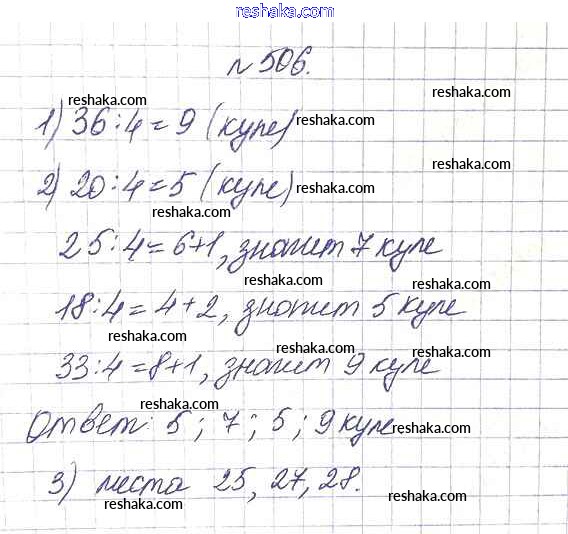 reshaka.com
№ 506.
reshaka.com reshaka.com
1) 36 : 4 = 9 (купе) reshaka.com
reshaka.com
2) 20 : 4 = 5 (купе) reshaka.com
reshaka.com
25 : 4 = 6+1, значит 7 купе
reshaka.com reshaka.com
18 : 4 = 4+2, значит 5 купе
reshaka.com reshaka.com
33 : 4 = 8+1, значит 9 купе
reshaka.com
Ответ: 5 ; 7 ; 5 ; 9 купе reshaka.com
reshaka.com
3) места 25, 27, 28.
reshaka.com reshaka.com